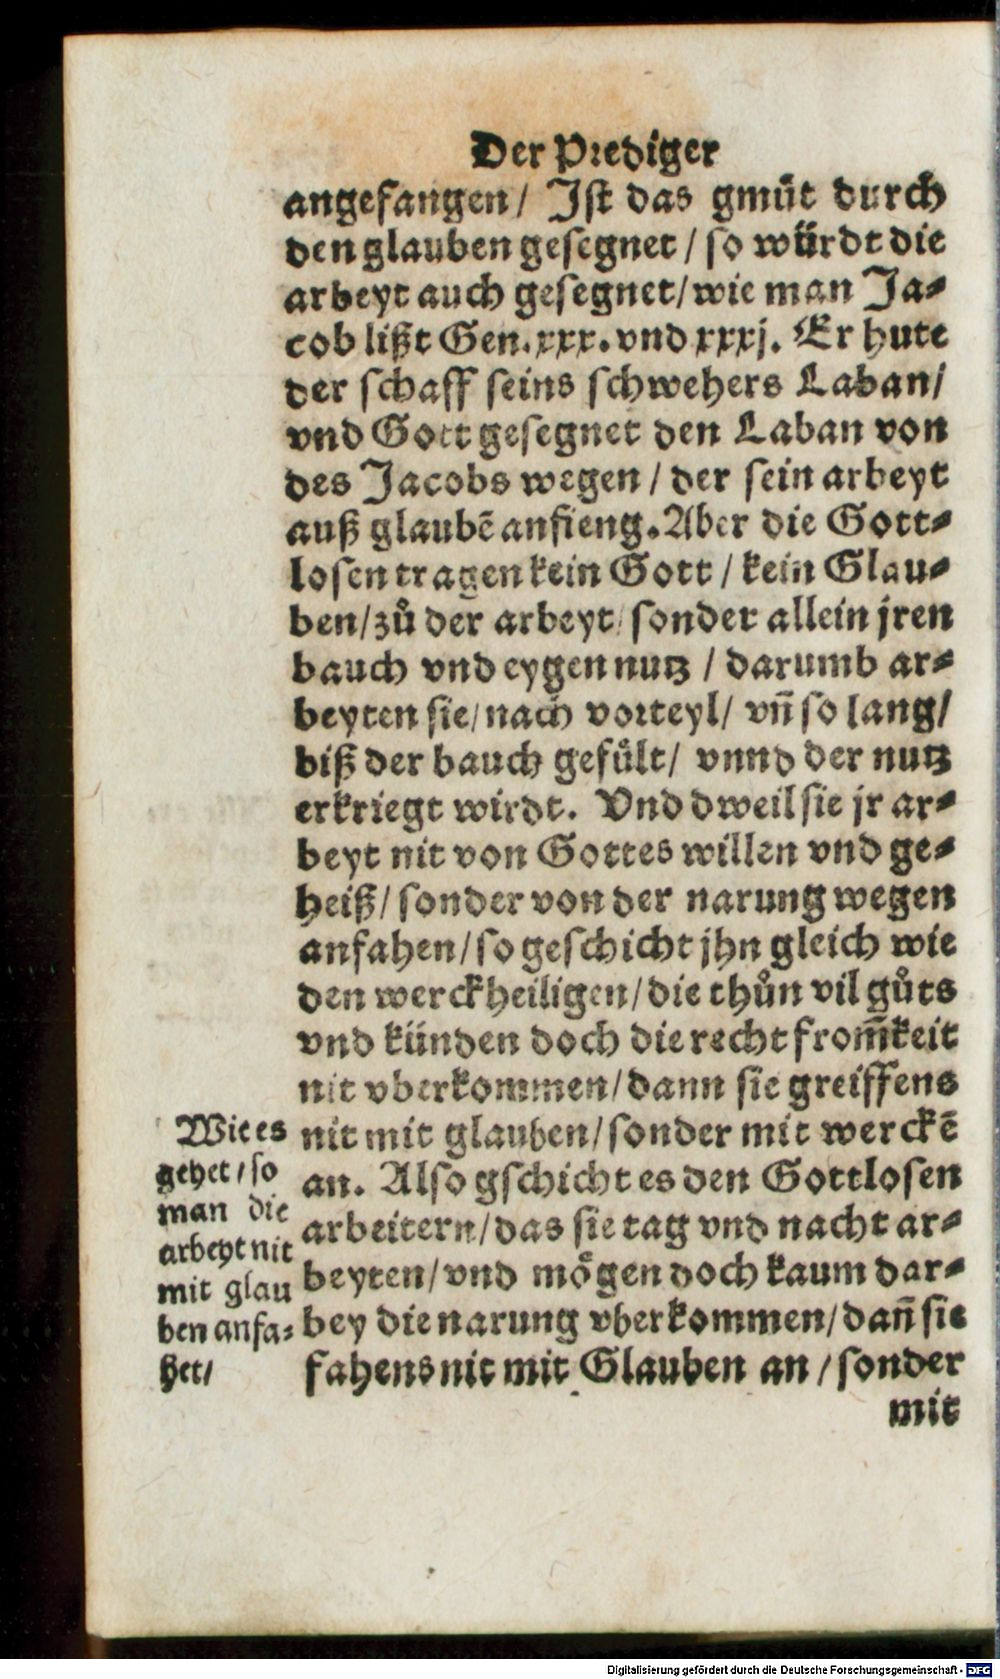 Der Prediger
angefangen/ Jst das gmuͤt durch
den glauben gesegnet/ so wuͤrdt die
arbeyt auch gesegnet/ wie man Ja⸗
cob lißt Gen. xxx. vnd xxxj. Er hute
der schaff seins schwehers Laban/
vnd Gott gesegnet den Laban von
des Jacobs wegen/ der sein arbeyt
auß glaubẽ anfieng. Aber die Gott⸗
losen tragen kein Gott/ kein Glau⸗
ben/ zů der arbeyt/ sonder allein jren
bauch vnd eygen nutz/ darumb ar⸗
beyten sie/ nach vorteyl/ vñ so lang/
biß der bauch gefuͤlt/ vnnd der nutz
erkriegt wirdt. Vnd dweil sie jr ar⸗
beyt nit von Gottes willen vnd ge⸗
heiß/ sonder von der narung wegen
anfahen/ so geschicht jhn gleich wie
den werckheiligen/ die thůn vil gůts
vnd kuͤnden doch die recht from̃keit
nit vberkommen/ dann sie greiffens
nit mit glauben/ sonder mit werckẽ
an. Also gschicht es den Gottlosen
arbeitern/ das sie tag vnd nacht ar⸗
beyten/ vnd moͤgen doch kaum dar⸗
bey die narung vberkommen/ dañ sie
fahens nit mit Glauben an/ sonder
mit
Wie es
gehet/ so
man die
arbeyt nit
mit glau
ben anfa⸗
het/
Digitalisierung gefördert durch die Deutsche Forschungsgemeinschaft - DFG